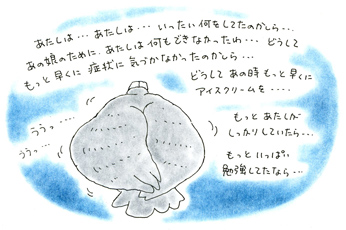 あたしは・・・あたしは・・・いったい何をしてたのかしら・・・
あの娘のために、あたしは何もできなかったわ・・・どうして
もっと早くに症状に気づかなかったのかしら・・・・
どうしてあの時もっと早くに
アイスクリームを・・・・
ううっ・・・
ううっ・・・
もっとあたしが
しっかりしていたら・・・
もっといっぱい
勉強してたなら・・・